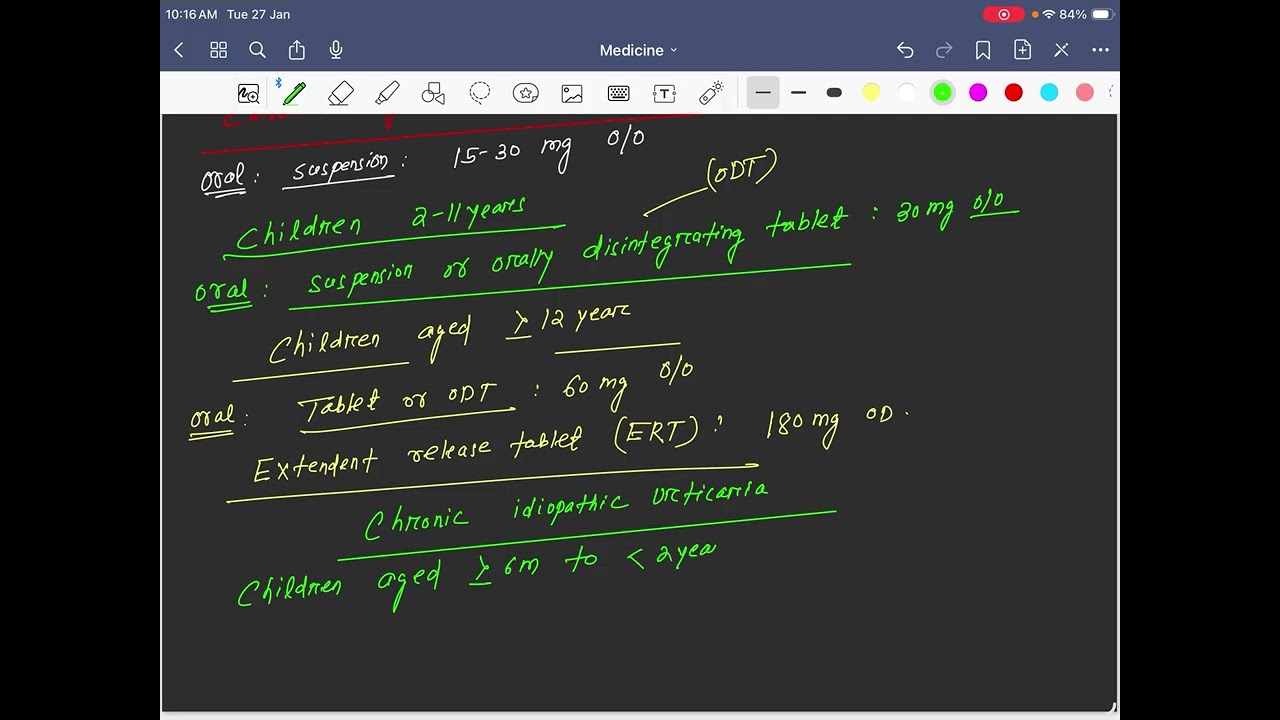 10:16 AM Tue 27 Jan
84%
Medicine
T
oral : suspension : 15-30 mg 0/0
(ODT)
Children 2-11 years
oral : suspension or orally disintegrating tablet : 30 mg 0/0
Children aged ≥ 12 years
oral : Tablet or ODT : 60 mg 0/0
Extendent release tablet (ERT) : 180 mg OD.
Chronic idiopathic urticaria
Children aged ≥ 6m to < 2 yea